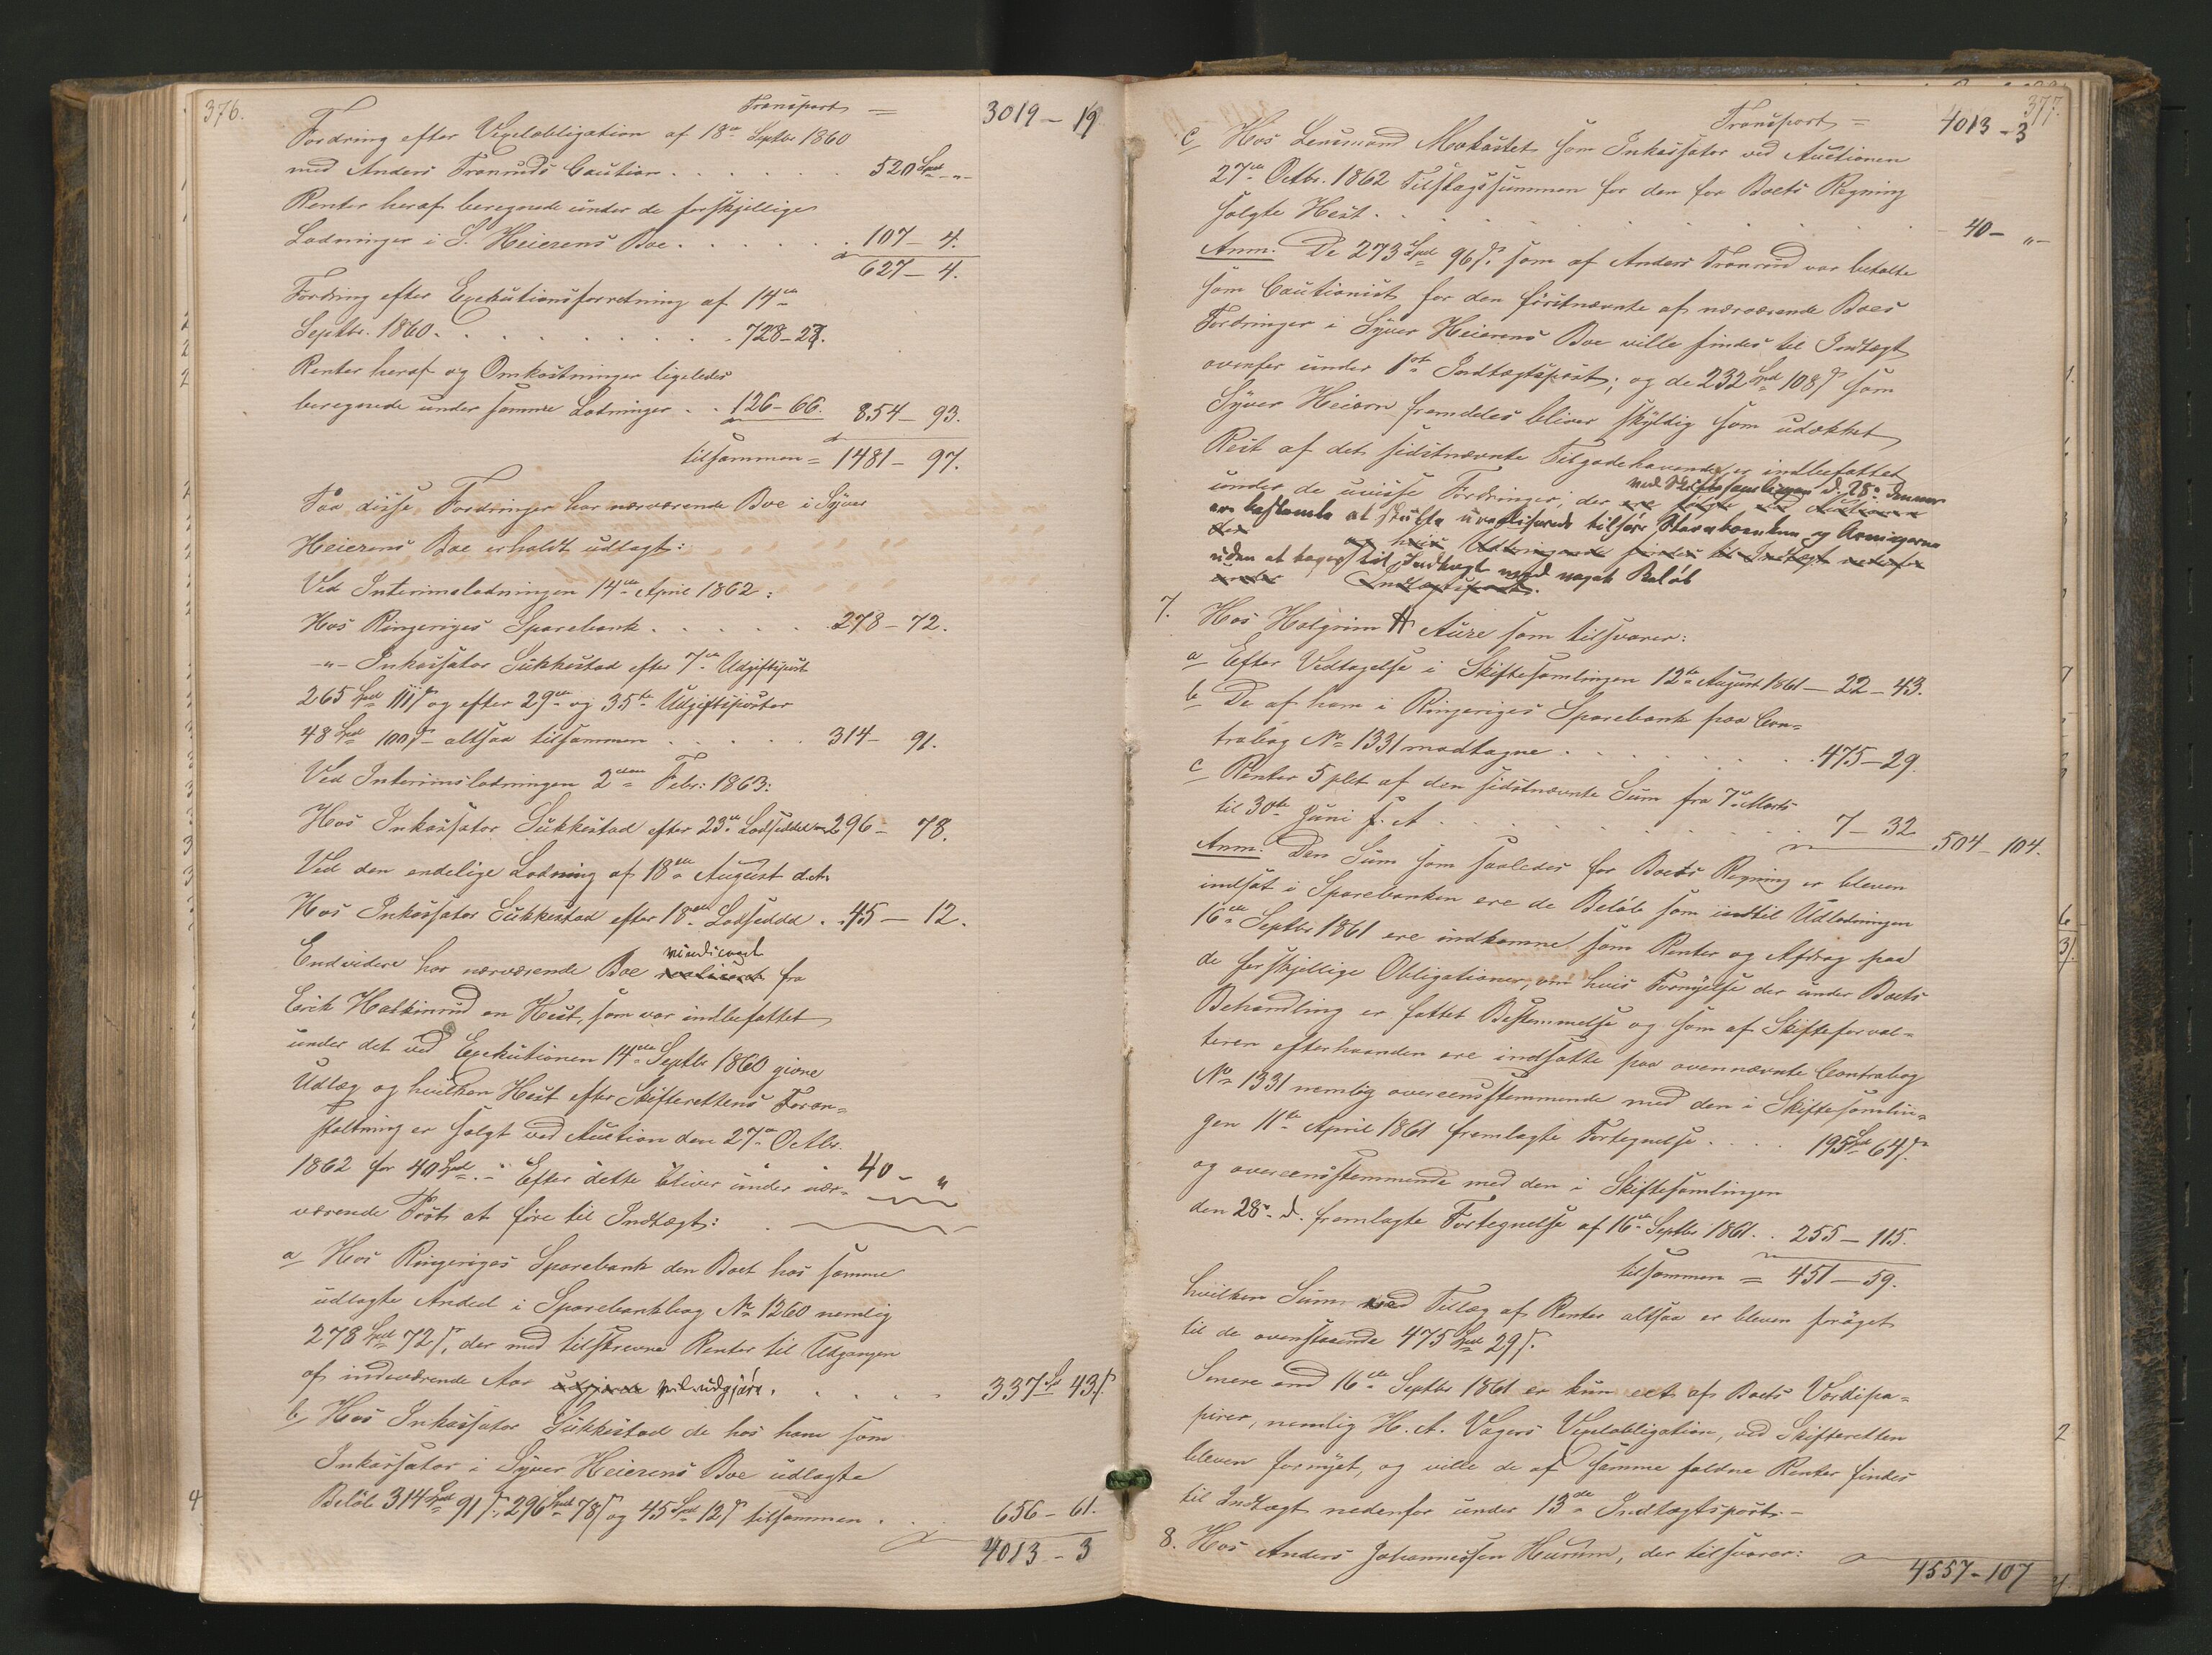 376.
Transport = 3019 – 19
Fordring efter Vexelobligation af 18de Septbr 1860
med Anders Tronruds Caution . . . . . . 520 Spd – „ –
Renter heraf beregnede under de forskjellige
Lodninger i S. Heierens Boe . . . . . . 107 – 4.
627 – 4.
Fordring efter Executionsforretning af 14de
Septbr. 1860 . . . . . . . . . 728 – 27.
Renter heraf og Omkostninger ligeledes
beregnede under samme Lodninger . . 126 – 66. 854 – 93.
tilsammen = 1481 – 97.
Paa disse Fordringer har nærværende Boe i Syver
Heierens Boe erholdt udlagt:
Ved Interimslodningen 14de April 1862:
Hos Ringeriges Sparebank . . . . . . 278 – 72.
– „ – Inkassator Sukkestad efter 7de Udgiftspost
265 Spd 111 ß og efter 29de og 35te Udgiftsposter
48 Spd 100 ß – altsaa tilsammen . . . . . 314 – 91.
Ved Interimslodningen 2den Febr: 1863:
Hos Inkassator Sukkestad efter 23de Lodseddel 296 – 78.
Ved den endelige Lodning af 18de August d. A.
Hos Inkassator Sukkestad efter 18de Lodseddel . 45 – 12.
vindiceret
Endvidere har nærværende Boe realiseret fra
Erik Halkinrud en Hest, som var indbefattet
under det ved Executionen 14de Septbr 1860 givne
Udlæg og hvilken Hest efter Skifterettens Foran=
staltning er solgt ved Auction den 27de Octbr.
1862 for 40 Spd. – Efter dette bliver under nær= 40 – „
værende Post at føre til Indtægt:
a Hos Ringeriges Sparebank den Boet hos samme
udlagte Andeel i Sparebankbog No 1260 nemlig
278 Spd 72 ß, der med tilskrevne Renter til Udgangen
af indeværende Aar udgjorde vil udgjøre. . . . . . 337 Spd 43 ß
b Hos Inkassator Sukkestad de hos ham som
Inkassator i Syver Heierens Boe udlagte
Beløb 314 Spd 91 ß, 296 Spd 78 ß og 45 Spd 12 ß tilsammen . . . 656 – 61.
4013 – 3
377.
Transport = 4013 – 3
c Hos Lensmand Mokastet som Inkassator ved Auctionen
27de Octbr. 1862 Tilslagssummen for den for Boets Regning
solgte Hest . . . . . . . . . . 40 – „ –
Anm: De 273 Spd 96 ß. som af Anders Tronrud var betalte
som Cautionist for den førstnævnte af nærværende Boes
Fordringer i Syver Heierens Boe ville findes til Indtægt
ovenfor under 1ste Indtægtspost; og de 232 Spd 108 ß som
Syver Heieren fremdeles bliver skyldig som udækket
Rest af det sidstnævnte Tilgodehavende, er indbefattet
ved Skiftesamlingen d. 28de dennes
under de uvisse Fordringer, der ere solgte ved Auctionen
ere bestemte at skulle urealiserede tilføre Stervboenken og Arvingerne
den og hvis Udbringende findes til Indtægt nedenfor
uden at tages til Indtægt med noget Beløb
under Indtægtspost.
7. Hos Halgrim A Aure som tilsvarer:
a Efter Vedtagelse i Skiftesamlingen 12te August 1861 – 22 – 43.
b De af ham i Ringeriges Sparebank paa Con=
trabog No 1331 modtagne . . . . . . . 475 – 29.
c Renter 5 pCt af den sidstnævnte Sum fra 7de Marts
til 30te Juni f. A . . . . . . . . . 7 – 32 504 – 104.
Anm: Den Sum som saaledes for Boets Regning er bleven
indsat i Sparebanken ere de Beløb som indtil Udlodningen
16de Septbr 1861 ere indkomne som Renter og Afdrag paa
de forskjellige Obligationer, om hvis Fornyelse der under Boets
Behandling er fattet Bestemmelse og som af Skifteforval=
teren efterhaanden ere indsatte paa ovennævnte Contrabog
No 1331 nemlig overeensstemmende med den i Skiftesamlin=
gen 11te April 1861 fremlagte Fortegnelse . . . . 195 Spd 64 ß.
og overeensstemmende med den i Skiftesamlingen
den 28de d. fremlagte Fortegnelse af 16de Septbr 1861 . . 255 – 115.
tilsammen = 451 – 59.
hvilken Sum med Tillæg af Renter altsaa er bleven forøget
til de ovenstaaende 475 Spd 29 ß.
Senere end 16de Septbr 1861 er kun eet af Boets Værdipa=
pirer, nemlig H. A. Vagers Vexelobligation, ved Skifteretten
bleven fornyet, og ville de af samme faldne Renter findes
til Indtægt nedenfor under 13de Indtægtspost. –
8. Hos Anders Johannessen Hurum, der tilsvarer:
4557 – 107